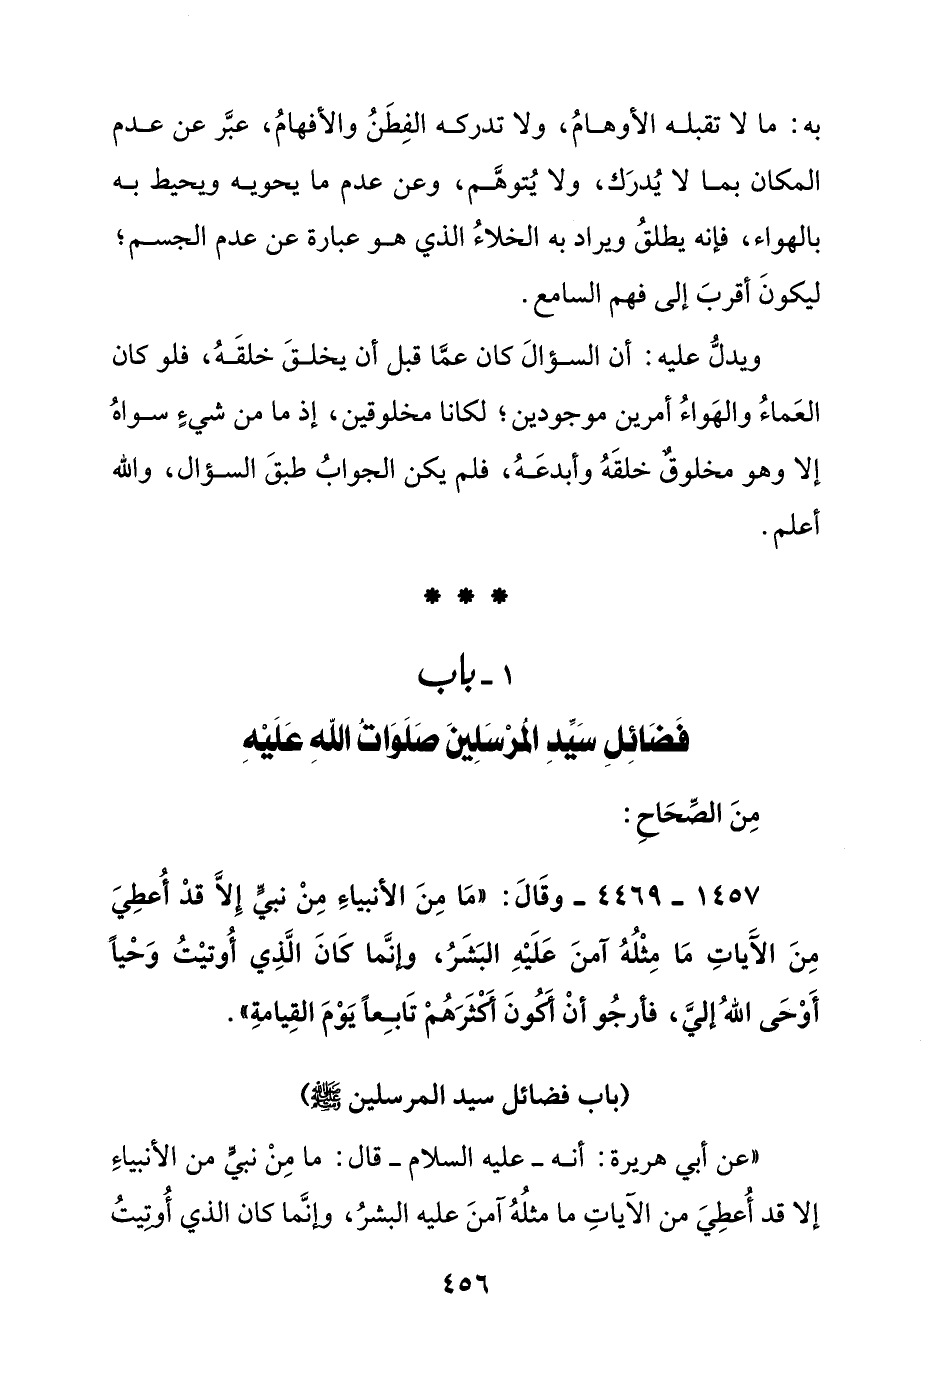 به: ما لا تقبله الأوهامُ، ولا تدركه الفِطَنُ والأفهامُ، عبَّر عن عدم
المكان بما لا يُدرَك، ولا يُتوهَّم، وعن عدم ما يحويه ويحيط به
بالهواء، فإنه يطلقُ ويراد به الخلاءُ الذي هو عبارة عن عدم الجسم؛
ليكونَ أقربَ إلى فهم السامع.
ويدلُّ عليه: أن السؤالَ كان عمَّا قبل أن يخلقَ خلقَهُ، فلو كان
العَماءُ والهَواءُ أمرين موجودين؛ لكانا مخلوقين، إذ ما من شيءٍ سواهُ
إلا وهو مخلوقٌ خلقَهُ وأبدعَهُ، فلم يكن الجوابُ طبقَ السؤال، والله
أعلم.
* * *
١ - باب
فَضَائِلِ سَيِّدِ المُرْسَلِينَ صَلَوَاتُ اللهِ عَلَيْهِ
مِنَ الصِّحَاحِ:
١٤٥٧ - ٤٤٦٩ - وقَالَ: «مَا مِنَ الأنبياءِ مِنْ نبيٍّ إِلاَّ قدْ أُعطِيَ
مِنَ الآيَاتِ مَا مِثْلُهُ آمنَ عَلَيْهِ البَشَرُ، وإنَّما كَانَ الَّذِي أُوتيْتُ وَحْياً
أَوْحَى اللهُ إليَّ، فأرجُو أنْ أكُونَ أكْثَرَهُمْ تَابِعاً يَوْمَ القِيامةِ».
(باب فضائل سيد المرسلين ﷺ)
«عن أبي هريرة: أنه - عليه السلام - قال: ما مِنْ نبيٍّ من الأنبياءِ
إلا قد أُعطِيَ من الآياتِ ما مثلُهُ آمنَ عليه البشرُ، وإنَّما كان الذي أُوتِيتُ
٤٥٦